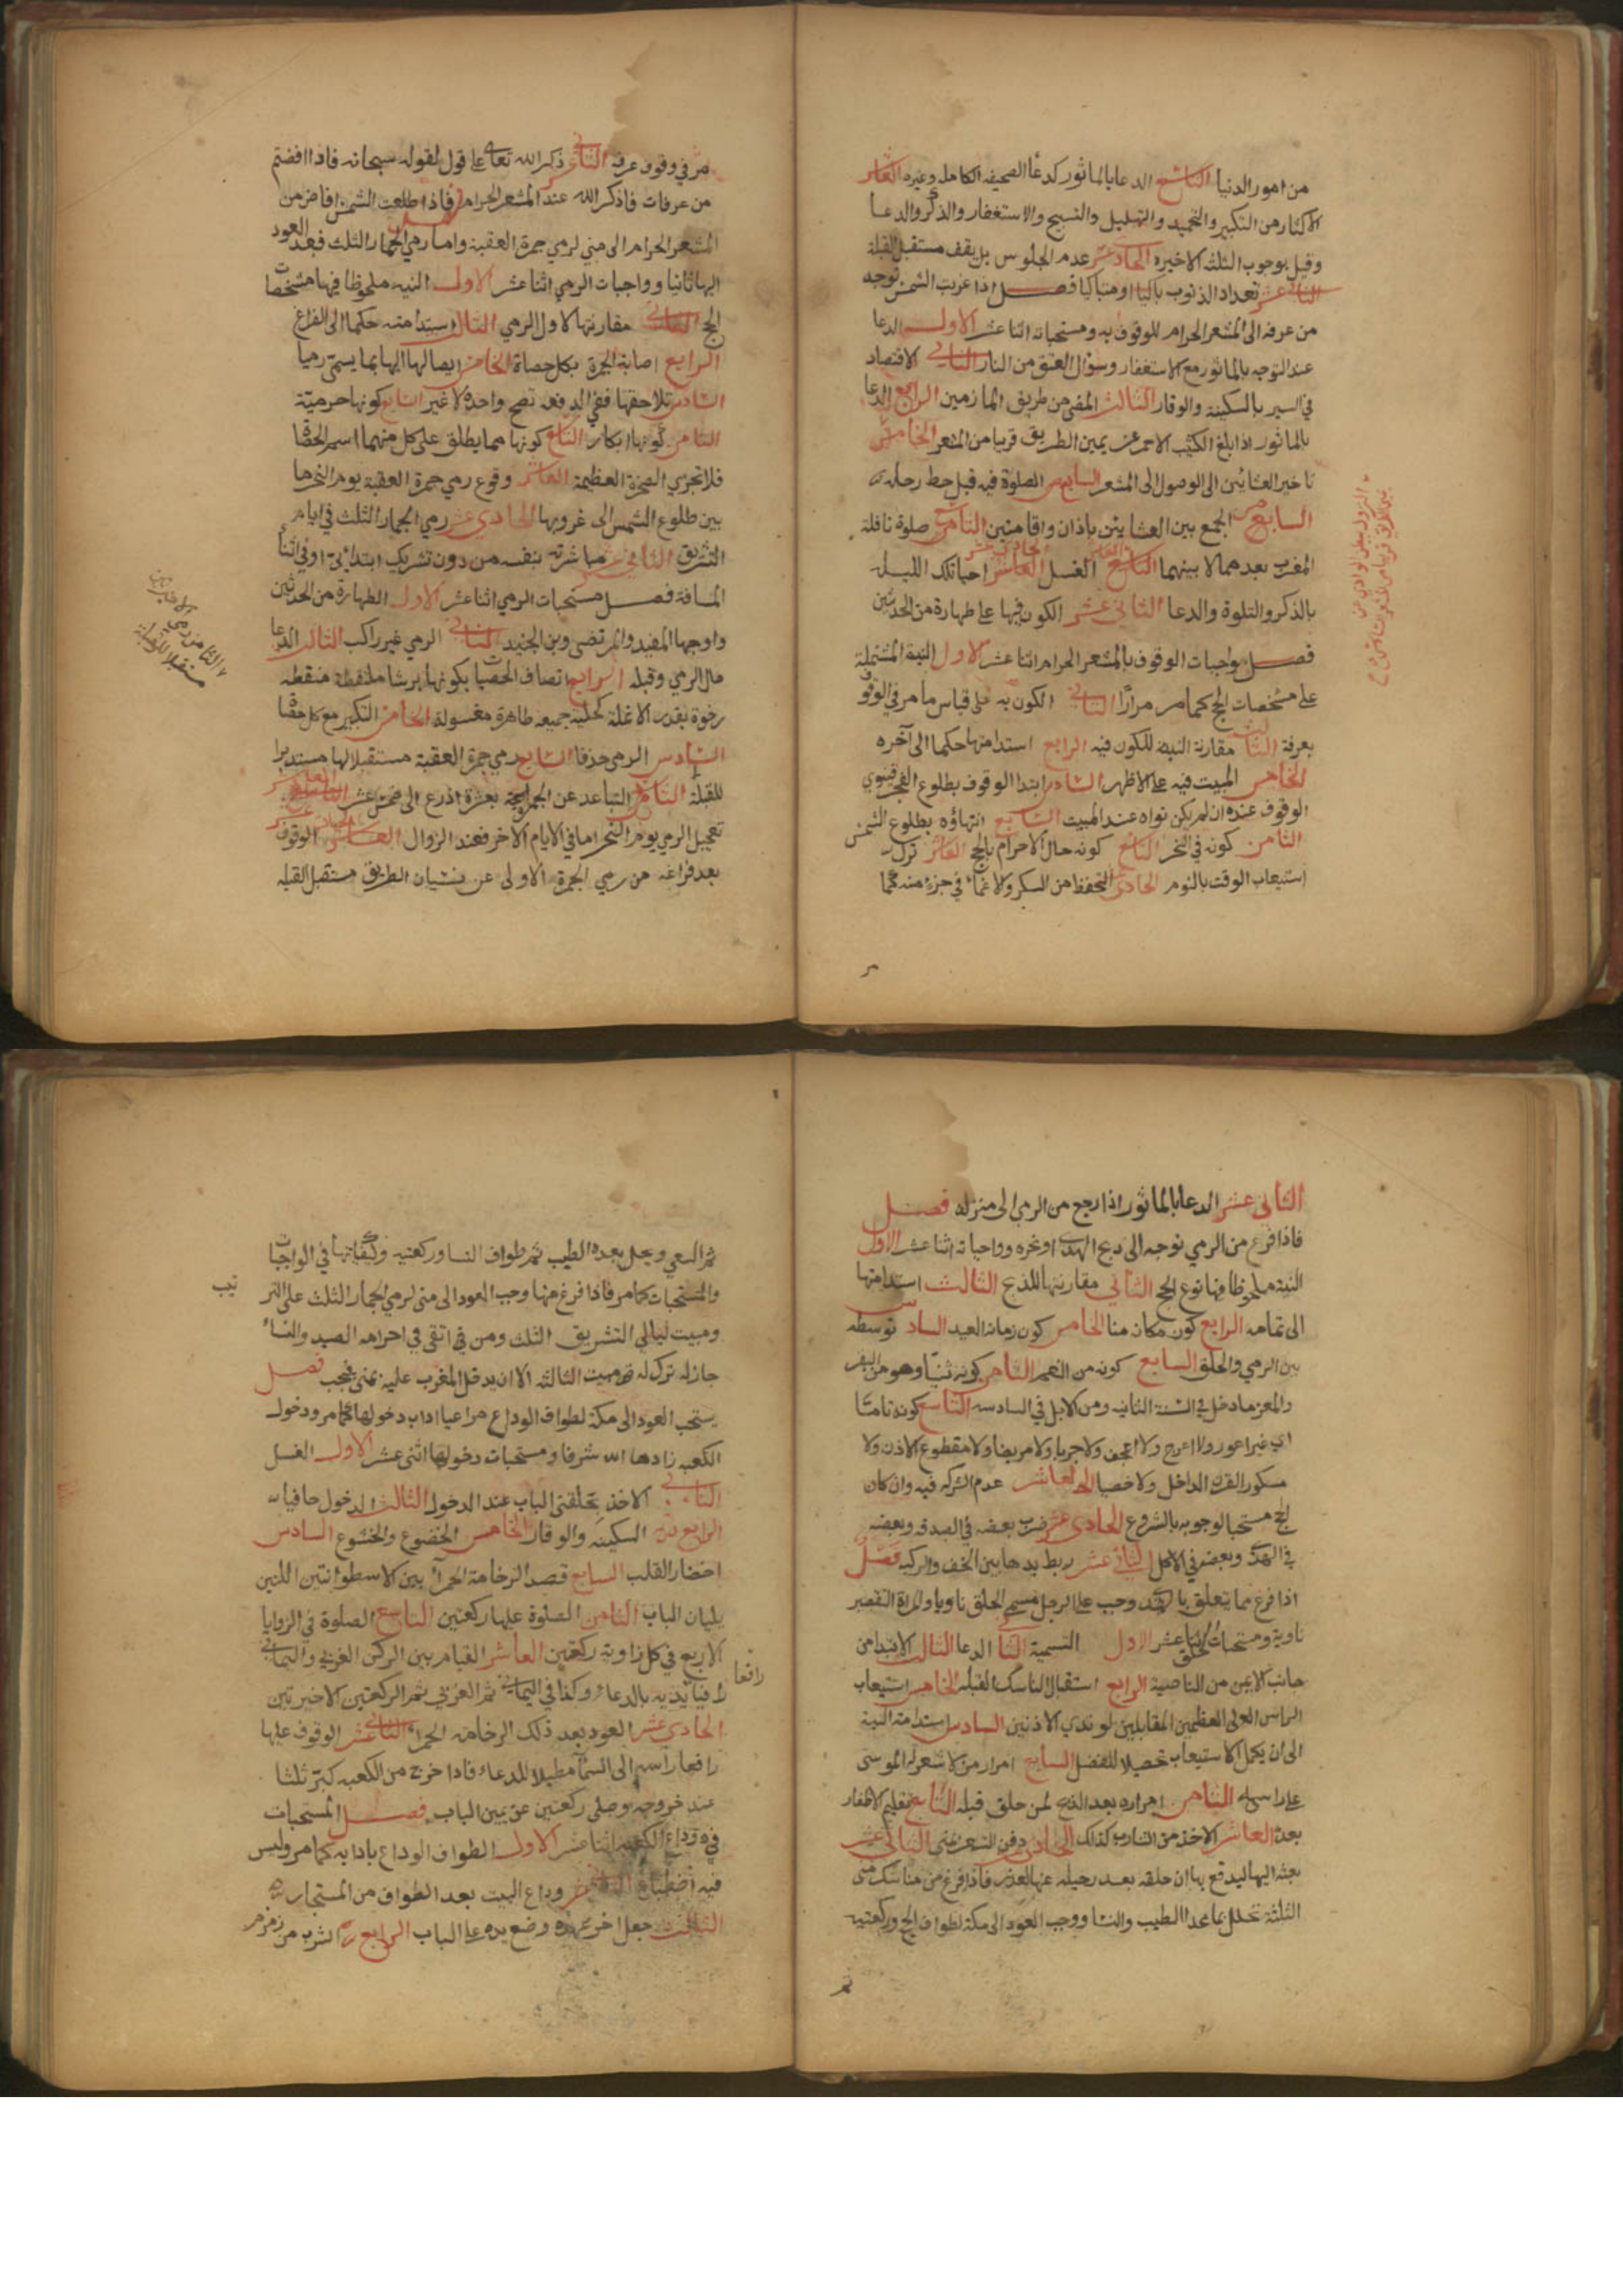 من امور الدنيا التاسع الدعا بالماثور كدعا الصحيفه الكامله وغيره العاشر
الاكثار من التكبير والتحميد والتهليل والتسبيح والاستغفار والذكر والدعا
وقيل بوجوب الثلثه الاخيره الحادى عشر عدم الجلوس بل يقف مستقبل القبلة
الثانى عشر تعداد الذنوب باكيا او متباكيا فصل اذا غربت الشمس توجه
من عرفه الى المشعر الحرام للوقوف به ومستحباته اثنا عشر الاول الدعا
عند التوجه بالماثور مع الاستغفار وسؤال العتق من النار الثانى الاقتصاد
فى السير بالسكينه والوقار الثالث المضى من طريق المازمين الرابع الدعا
بالماثور اذا بلغ الكثيب الاحمر عن يمين الطريق قريبا من المشعر الخامس
تاخير العشائين الى الوصول الى المشعر السادس الصلوة فيه قبل حط رحله
السابع الجمع بين العشائين باذان واقامتين الثامن صلوة نافلة
المغرب بعدهما لا بينهما التاسع العاشر الغسل الحادى عشر احيا تلك الليلة
بالذكر والتلوة والدعا الثانى عشر الكون فيها على طهارة من الحدثين
فصل واجبات الوقوف بالمشعر الحرام اثنا عشر الاول النية المشتملة
على مشخصات الحج كما مر مرارا الثانى الكون به على قياس ما مر فى الوقوف
بعرفة الثالث مقارنة النية للكون فيه الرابع استدامتها حكما الى آخره
الخامس المبيت فيه على الاظهر السادس ابتدا الوقوف بطلوع الفجر فينوى
الوقوف عنده ان لم يكن نواه عند المبيت السابع انتهاؤه بطلوع الشمس
الثامن كونه فى النحر التاسع كونه حال الاحرام بالحج العاشر ترك
استيعاب الوقت بالنوم الحادى التحفظ من السكر والاغماء فى جزء منه كما
النزول ببطن الوادى عن
يمين الطريق قريبا من المشعر
مر
مر فى وقوف عرفه الثانى عشر ذكر الله تعالى على قول لقوله سبحانه فاذا افضتم
من عرفات فاذكر الله عند المشعر الحرام فصل فاذا طلعت الشمس افاض من
المشعر الحرام الى منى لرمي جمرة العقبة واما رمي الجمار الثلث فبعد العود
اليها ثانيا وواجبات الرمي اثنا عشر الاول النيه ملحوظا فيها مشخصات
الحج الثانى مقارنتها لاول الرمي الثالث استدامته حكما الى الفراغ
الرابع اصابة الجمرة بكل حصاة الخامس ايصالها اليها بما يسمى رميا
السادس تلاحقها ففى الدفعه تصح واحدة لا غير السابع كونها حرمية
الثامن كونها ابكار التاسع كونها مما يطلق على كل منهما اسم الحصاة
فلا تجزي الصخرة العظيمة العاشر وقوع رمي جمرة العقبة يوم النحر ما
بين طلوع الشمس الى غروبها الحادى عشر رمي الجمار الثلث فى ايام
التشريق الثانى عشر مباشرته بنفسه من دون تشريك ابتدا او فى اثنا
المسافة فصل مستحبات الرمي اثنا عشر الاول الطهارة من الحدثين
واوجبها المفيد والمرتضى وبن الجنيد الثانى الرمي غير راكب الثالث الدعا
حال الرمي وقبله الرابع اتصاف الحصيات بكونها برشا ملتقطة منقطه
رخوة بقدر الانملة كحلية جميعه طاهرة مغسولة الخامس التكبير مع كل حصاة
السادس الرمى خذفا السابع رمي جمرة العقبة مستقبلا لها مستدبرا
للقبلة الثامن التباعد عن الجمرة بعشرة اذرع الى خمس عشر العاشر
تعجيل الرمي يوم النحر اما فى الايام الاخر فعند الزوال الحادى عشر الوقوف
بعد فراغه من رمي الجمرة الاولى عن يسار الطريق مستقبل القبلة
الثامن رمي الاخيرتين
مستقبلا للقبلة
الثانى عشر الدعا بالماثور اذا رجع من الرمي الى منزله فصل
فاذا فرغ من الرمي توجه الى ذبح الهدى او نحره وواجباته اثنا عشر الاول
النية ملحوظا فيها نوع الحج الثانى مقارنتها للذبح الثالث استدامتها
الى تمامه الرابع كون مكانه منا الخامس كون زمانه العيد السادس توسطه
بين الرمي والحلق السابع كونه من النعم الثامن كونه ثنيا وهو من البقر
والمعز ما دخل فى السنة الثانيه ومن الابل فى السادسه التاسع كونه تاما
اى غير اعور ولا اعرج ولا اعجف ولا جربا ولا مريضا ولا مقطوع الاذن ولا
مكسور القرن الداخل ولا خصيا العاشر عدم الشركة فيه وان كان
الحج مستحبا لوجوبه بالشروع الحادى عشر صرف بعضه فى الصدقه وبعضه
فى الهدى وبعضه فى الاكل الثانى عشر ربط يديها بين الخف والركبه فصل
اذا فرغ مما يتعلق بالهدى وجب على الرجل مسمى الحلق ناويا والمراة التقصير
ناوية ومستحبات الحلق اثنا عشر الاول التسمية الثانى الدعا الثالث الابتدا من
جانب الايمن من الناصية الرابع استقبال الناسك القبله الخامس استيعاب
الراس الى العظمين المقابلين لوتدي الاذنين السادس استدامة النية
الى ان يكمل الاستيعاب تحصيلا للفضل السابع امرار من لا شعر له الموسى
على راسه الثامن امراره بعد الذبح لمن حلق قبله التاسع تقليم الاظفار
بعده العاشر الاخذ من الشارب كذلك الحادى دفن الشعر بمنى الثانى عشر
بعثه اليها ليدفع بها ان حلقه بعد رحيله عنها لعذر فاذا فرغ من مناسك منى
الثلثة تحلل مما عدا الطيب والنسا ووجب العود الى مكة لطواف الحج وركعتيه
ثم
ثم السعي ويحل بعده الطيب ثم طواف النسا وركعتيه وكيفياتها فى الواجبات
والمستحبات كما مر فاذا فرغ منها وجب العود الى منى لرمي الجمار الثلث على التر
تيب
ومبيت ليالى التشريق الثلث ومن اتقى فى احرامه الصيد والنساء
جاز له ترك مبيت الثالثه الا ان يدخل المغرب عليه بمنى فيجب فصل
يستحب العود الى مكة لطواف الوداع مراعيا اداب دخولها كما مر ودخول
الكعبه زادها الله شرفا ومستحبات دخولها اثنى عشر الاول الغسل
الثانى الاخذ بحلقتى الباب عند الدخول الثالث الدخول حافيا
الرابع السكينه والوقار الخامس الخضوع والخشوع السادس
احضار القلب السابع قصد الرخامة الحمرآ بين الاسطوانتين اللتين
يليان الباب الثامن الصلوة عليها ركعتين التاسع الصلوة فى الزوايا
الاربع فى كل زاوية ركعتين العاشر القيام بين الركن الغربى واليمانى
رافعا
رافعا يديه بالدعاء وكذا فى اليمانى ثم الغربى ثم الركعتين الاخيرتين
الحادى عشر العود بعد ذلك الرخامه الحمرا الثانى عشر الوقوف عليها
رافعا راسه الى السمآ مطيلا للدعاء فاذا خرج من الكعبه كبر ثلثا
عند خروجه وصلى ركعتين عن يمين الباب فصل المستحبات
فى وداع الكعبه اثنا عشر الاول الطواف الوداع بادابه كما مر وليس
فيه اضطباع الثانى وداع البيت بعد الطواف من المستجار
الثالث جعل اخر عهده وضع يده على الباب الرابع الشرب من زمزم